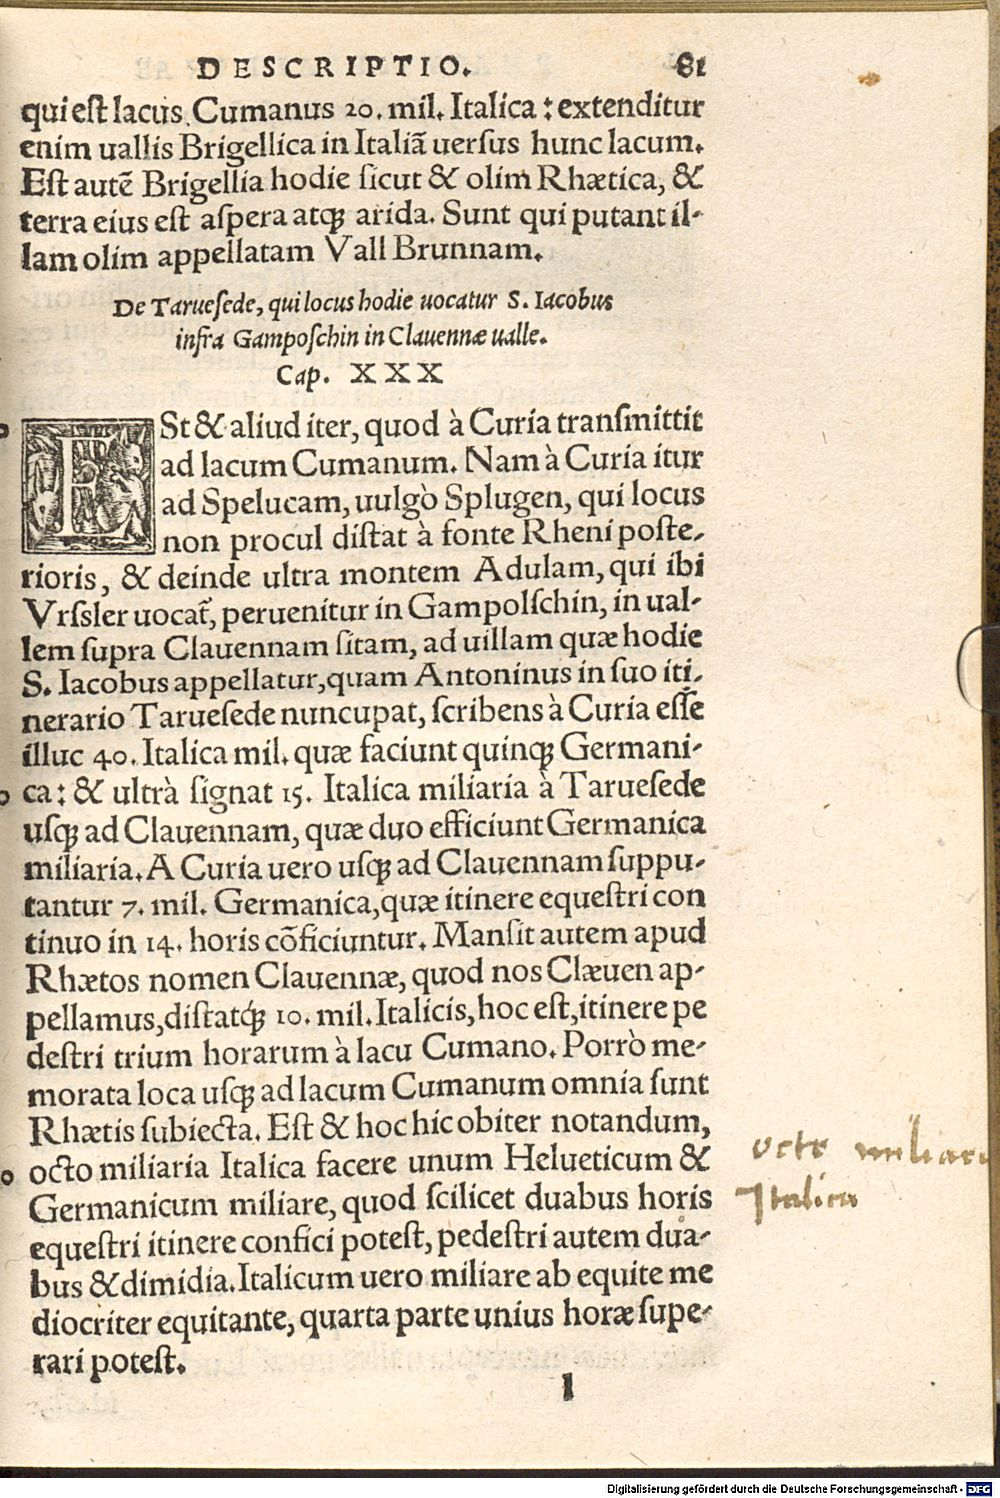 DESCRIPTIO. 81
qui est lacus Cumanus 20. mil. Italica: extenditur
enim uallis Brigellica in Italiã uersus hunc lacum.
Est autẽ Brigellia hodie sicut & olim Rhætica, &
terra eius est aspera atqꝫ arida. Sunt qui putant il-
lam olim appellatam Vall Brunnam.
De Taruesede, qui locus hodie uocatur S. Iacobus
infra Gamposchin in Clauennæ ualle.
Cap. XXX
ESt & aliud iter, quod à Curia transmittit
ad lacum Cumanum. Nam à Curia itur
ad Spelucam, uulgò Splugen, qui locus
non procul distat à fonte Rheni poste-
rioris, & deinde ultra montem Adulam, qui ibi
Vrssler uocat᷑, peruenitur in Gampolschin, in ual-
lem supra Clauennam sitam, ad uillam quæ hodie
S. Iacobus appellatur, quam Antoninus in suo iti-
nerario Taruesede nuncupat, scribens à Curia esse
illuc 40. Italica mil. quæ faciunt quinqꝫ Germani-
ca: & ultrà signat 15. Italica miliaria à Taruesede
usqꝫ ad Clauennam, quæ duo efficiunt Germanica
miliaria. A Curia uero usqꝫ ad Clauennam suppu-
tantur 7. mil. Germanica, quæ itinere equestri con
tinuo in 14. horis cõficiuntur. Mansit autem apud
Rhætos nomen Clauennæ, quod nos Clæuen ap-
pellamus, distatq́ꝫ 10. mil. Italicis, hoc est, itinere pe
destri trium horarum à lacu Cumano. Porrò me-
morata loca usqꝫ ad lacum Cumanum omnia sunt
Rhætis subiecta. Est & hoc hic obiter notandum,
octo miliaria Italica facere unum Helueticum &
Germanicum miliare, quod scilicet duabus horis
equestri itinere confici potest, pedestri autem dua-
bus & dimidia. Italicum uero miliare ab equite me
diocriter equitante, quarta parte unius horæ supe-
rari potest.
l
octo miliari
Italica
Digitalisierung gefördert durch die Deutsche Forschungsgemeinschaft - DFG